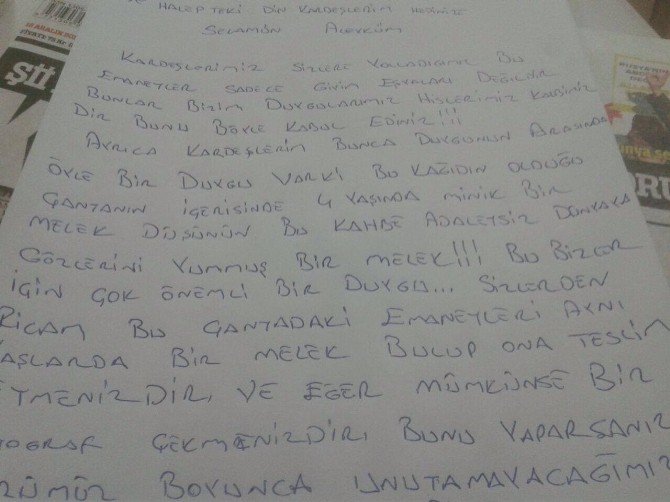 HALEPTEKİ DİN KARDEŞLERİM HEPİNİZE
SELAMÜN ALEYKÜM
KARDEŞLERİMİZ SİZLERE YOLLADIĞIMIZ BU
EMANETLER SADECE GİYİM EŞYALARI DEĞİLDİR
BUNLAR BİZİM DUYGULARIMIZ HİSLERİMİZ KALBİMİZ
DİR BUNU BÖYLE KABUL EDİNİZ!!!
AYRICA KARDEŞLERİM BUNCA DUYGUNUN ARASINDA
ÖYLE BİR DUYGU VARKİ BU KAĞIDIN OLDUĞU
ÇANTANIN İÇERİSİNDE 4 YAŞINDA MİNİK BİR
MELEK DÜŞÜNÜN BU KAHBE ADALETSİZ DÜNYAYA
GÖZLERİNİ YUMMUŞ BİR MELEK!!! BU BİZLER
İÇİN ÇOK ÖNEMLİ BİR DUYGU... SİZLERDEN
RİCAM BU ÇANTADAKİ EMANETLERİ AYNI
YAŞLARDA BİR MELEK BULUP ONA TESLİM
ETMENİZDİR, VE EĞER MÜMKÜNSE BİR
OĞRAF ÇEKMENİZDİR, BUNU YAPARSANIZ
ÖMÜR BOYUNCA UNUTAMAYACAĞIMIZ
Şİİ